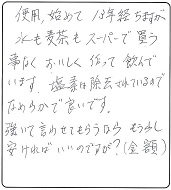 使用、始めて 13年経ちますが
水も麦茶もスーパーで買う
事なく おいしく 作って 飲んで
います。塩素は除去されているので
なめらかで良いです。
強いて言わせてもらうなら もう少し
安ければ いいのですが?(金額)